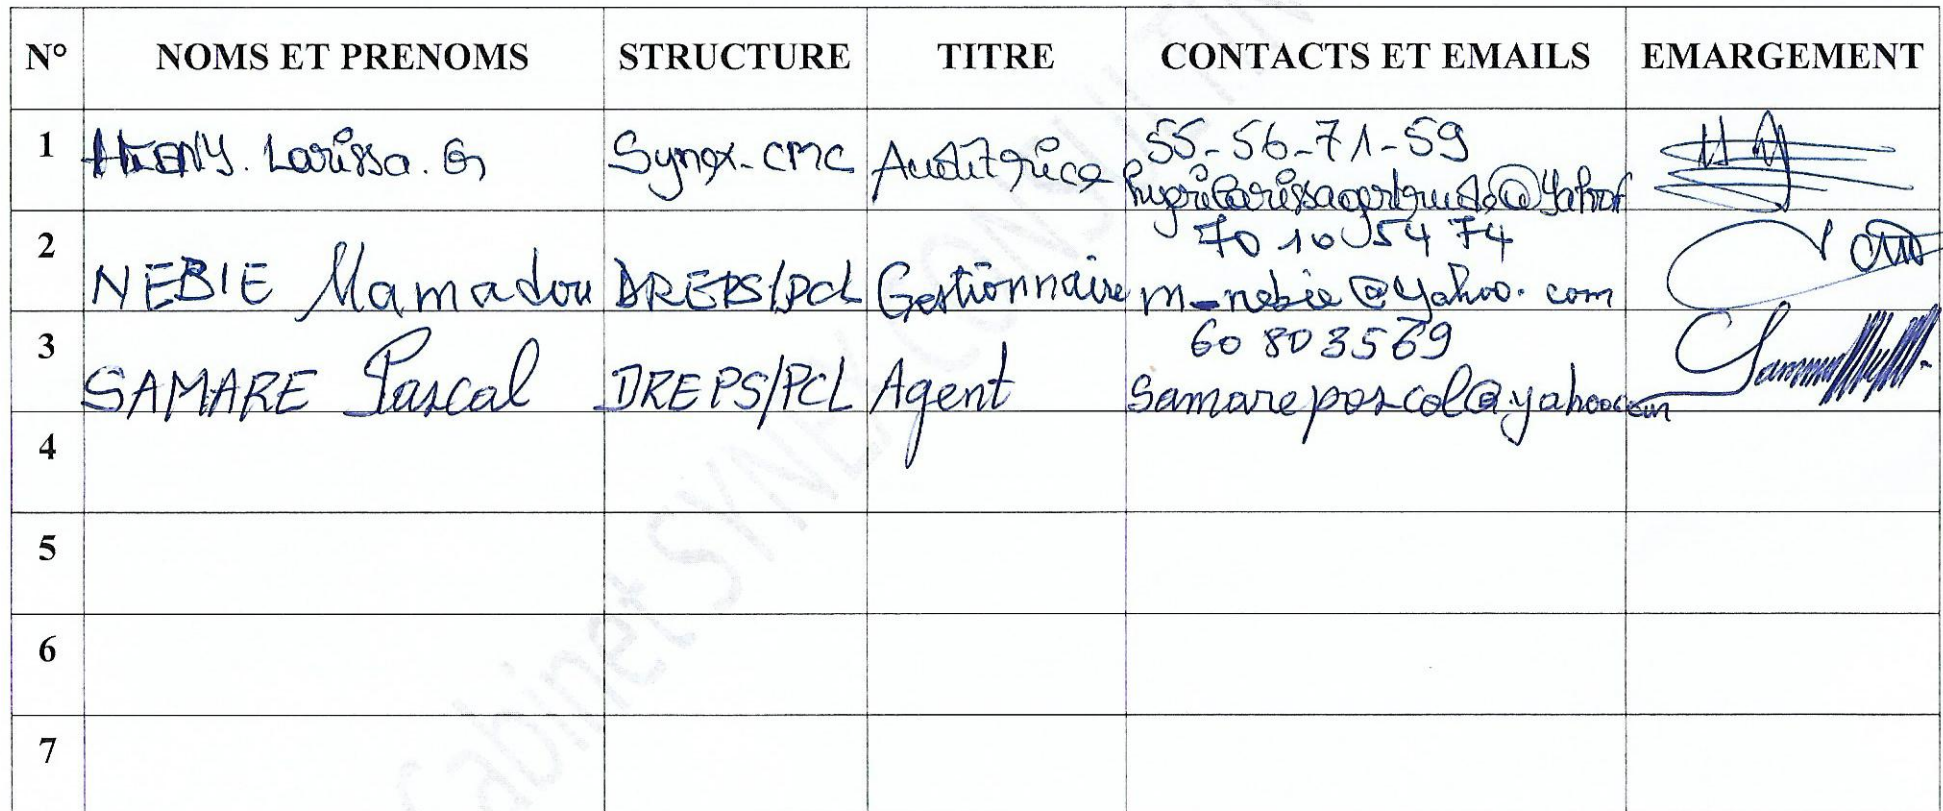 N° NOMS ET PRENOMS STRUCTURE TITRE CONTACTS ET EMAILS EMARGEMENT
1 Larissa. G Synex-CMC Auditrice 55-56-71-59
2 NEBIE Mamadou DREPS/PCL Gestionnaire 70 10 54 74
m_nebie@yahoo.com
3 SAMARE Pascal DREPS/PCL Agent 60 80 35 69
samarepascal@yahoo.com
4
5
6
7
Cabinet SYNEX CONSULTIN